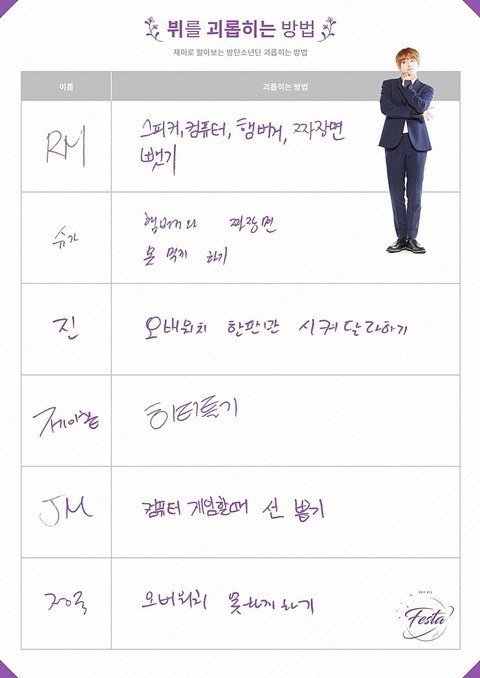 뷔를 괴롭히는 방법
재미로 알아보는 방탄소년단 괴롭히는 방법
이름 괴롭히는 방법
RM 스피커, 컴퓨터, 햄버거, 짜장면
뺏기
슈가 햄버거와 짜장면
못 먹게 하기
진 오버워치 한판만 시켜달라하기
제이홉 히터틀기
JM 컴퓨터 게임할때 선 뽑기
정국 오버워치 못하게 하기
Festa